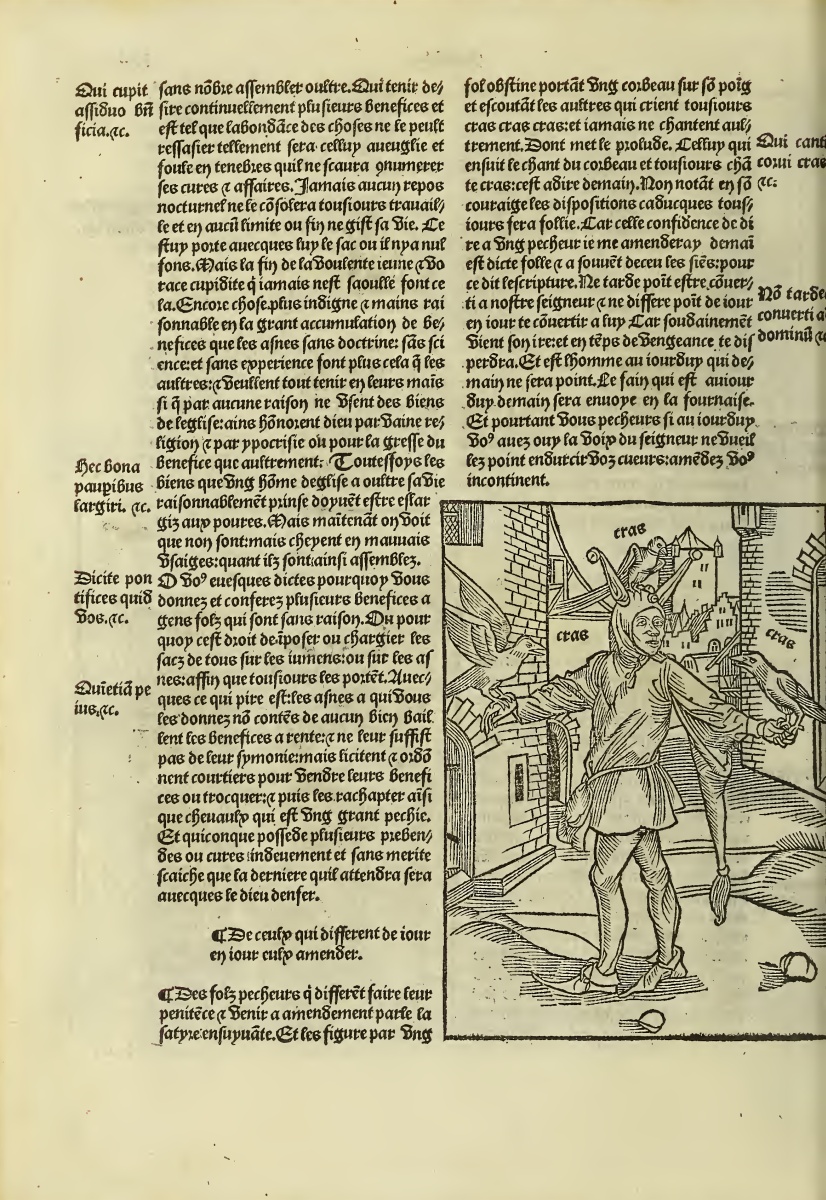 Qui cupit
assiduo bñ
ficia.⁊c.
Hec bona
paupibus
largiri. ⁊c.
Dicite pon
tifices quid
vos.⁊c.
Quietiã pe
ius.⁊c.
sans nõbre assembler oultre. Qui tenir de/
sire continuellement plusieurs benefices et
est tel que labondãce des choses ne le peult
ressasier tellement sera cessuy aueuglie et
foule en tenebres quil ne scaura ꝯnumerer
ses cures ⁊ affaires. Jamais aucun repos
nocturnel ne le cõsolera tousiours trauail/
le et en aucũ limite ou fin ne gist sa vie. Ce
stuy porte auecques luy le sac ou il nya nul
fons. Mais la fin de la voulente ieune ⁊ vo
race cupidite q̃ iamais nest saoulle font ce
la. Encore chose plus indigne ⁊ mains rai
sonnable en la grant accumulation de be/
nefices que les asnes sans doctrine: sãs sci
ence:et sans experience font plus cela q̃ les
aultres:⁊ veullent tout tenir en leurs mais
si q̃ par aucune raison ne vsent des biens
de leglise:ains hõnorent dieu par vaine re/
ligion ⁊ par ypocrisie ou pour la gresse du
benefice que aultrement. Touteffoys les
biens que vng hõme deglise a oultre sa vie
raisonnablemẽt prinse doyuẽt estre eslar
giz aux poures. Mais maĩtenãt on voit
que non sont:mais cheyent en mauuais
vsaiges:quant ilz sont ainsi assemblez.
O voꝰ euesques dictes pourquoy vous
donnez et conferez plusieurs benefices a
gens folz qui sont sans raison. Ou pour
quoy cest droit de ĩposer ou chargier les
sacz de tous sur les iumens:ou sur les as
nes:affin que tousiours les portẽt. Auec/
ques ce qui pire est:les asnes a qui vous
les donnez nõ contẽs de aucun bien bail
lent les benefices a rente:⁊ ne leur suffist
pas de leur symonie:mais licitent ⁊ ordõ
nent courtiers pour vendre leurs benefi
ces ou trocquer:⁊ puis les rachapter aĩsi
que cheuaulx qui est vng grant pechie.
Et quiconque possede plusieurs preben/
des ou cures indeuement et sans merite
scaiche que la derniere quil attendra sera
auecques le dieu denfer.
¶De ceulx qui different de iour
en iour eulx amender.
¶Des folz pecheurs q̃ differẽt faire leur
penitẽce ⁊ venir a amendement parle la
satyre ensuyuãte. Et les figure par vng
fol obstine portãt vng corbeau sur sõ poĩg
et escoutãt les aultres qui crient tousiours
cras cras cras:et iamais ne chantent aul/
trement. Dont met le prolude. Celluy qui
ensuit le chant du corbeau et tousiours chã
te cras:cest adire demain. Non notãt en sõ
couraige les dispositions caducques tous/
iours sera follie. Car celle confidence de di
re a vng pecheur ie me amenderay demaĩ
est dicte folle ⁊ a souuẽt deceu les siẽs:pour
ce dit lescripture. Ne tarde poĩt estre cõuer/
ti a nostre seigneur ⁊ ne differe poĩt de iour
en iour te cõuertir a luy Car soudainemẽt
vient son ire:et en tẽps de vengeance te dis
perdra. Et est lhomme au iourduy qui de/
main ne sera point. Le fain qui est auiour
duy demain sera enuoye en la fournaise.
Et pourtant vous pecheurs si au iourduy
voꝰ auez ouy la voix du seigneur ne vueil
lez point endurcir voz cueurs:amẽdez voꝰ
incontinent.
Qui canti
corui cras
⁊c.
Nõ tarde
conuerti a
dominũ ⁊c
cras
cras
cras